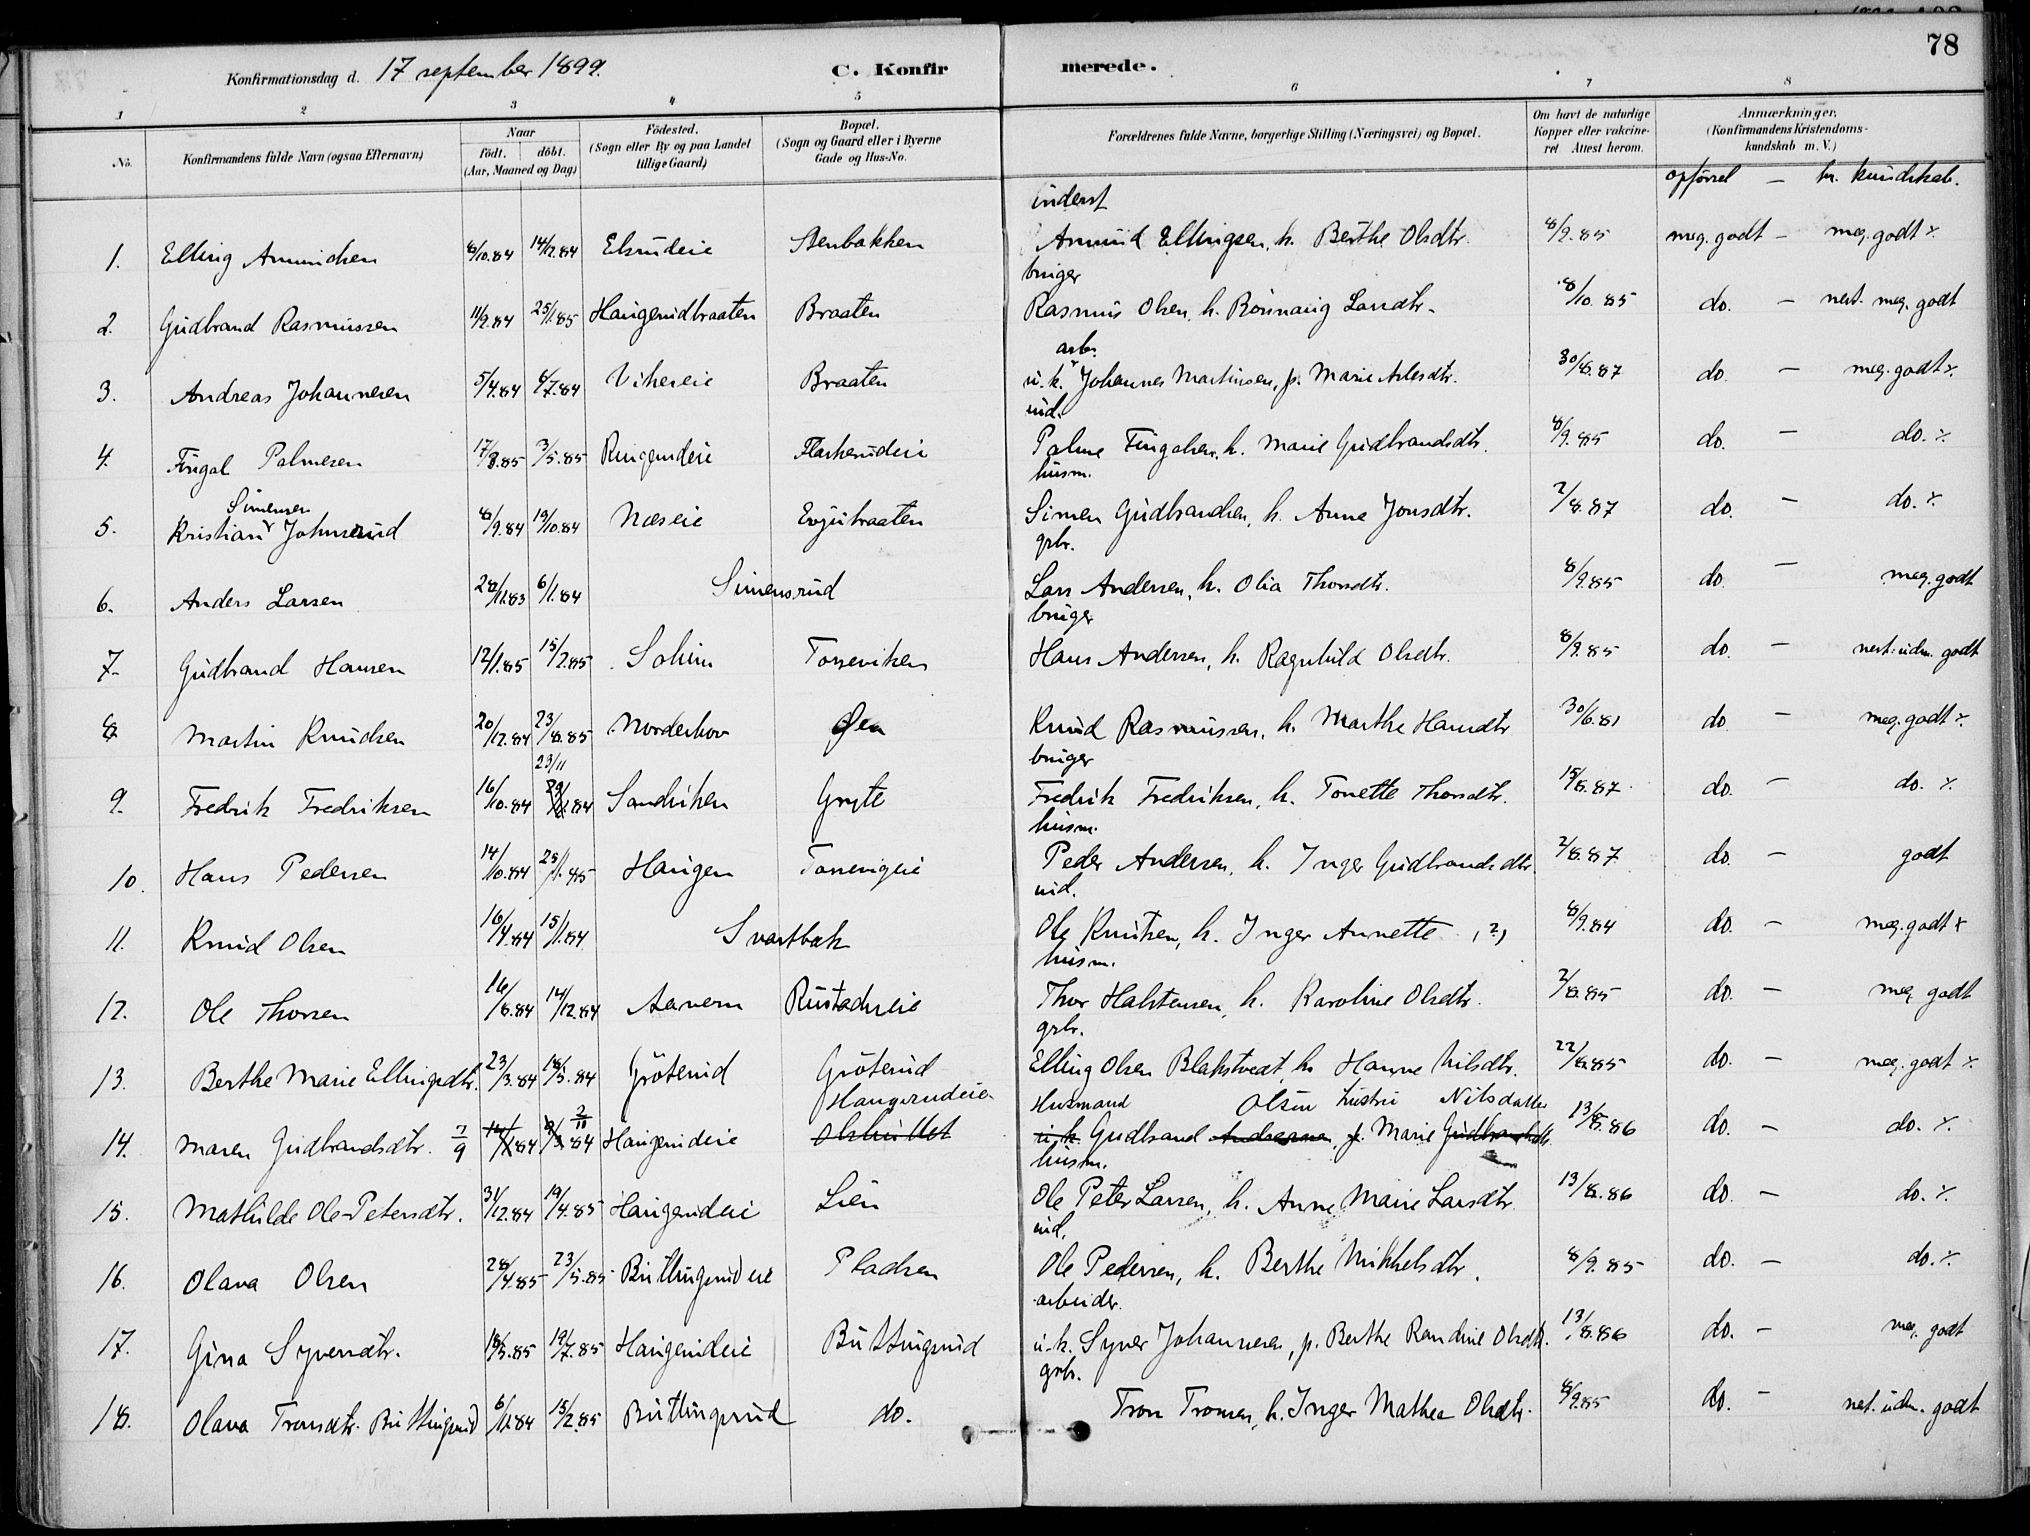 78
Konfirmationsdag d. 17 september 1899.
C. Konfirmerede.
1 2 3 4 5 6 7 8
No. Konfirmandens fulde Navn (ogsaa Efternavn) Naar födt. döbt. (Aar, Maaned og Dag) Födested. (Sogn eller By og paa Landet tillige Gaard) Bopæl. (Sogn og Gaard eller i Byerne Gade og Hus-No. Forældrenes fulde Navne, borgerlige Stilling (Næringsvei) og Bopæl. Om havt de naturlige Kopper eller vakcineret Attest herom. Anmærkninger. (Konfirmandens Kristendomskundskab m. V.)
opförsel — kr. kundskab.
inderst
1. Elling Amundsen 8/10.84 14/12.84 Elsrudeie Stenbakken Amund Ellingsen, h. Berthe Olsdtr. 8/9.85 meg. godt — meg. godt
bruger
2. Gudbrand Rasmussen 11/9.84 25/1.85 Haugerudbraaten Braaten Rasmus Olsen, h. Rönnaug Larsdtr. 8/10.85 do. — nest. meg. godt
arb.
3. Andreas Johannesen 5/4.84 6/7.84 Vikereie Braaten u.k. Johannes Martinsen, p. Marie 30/6.87 do. — meg. godt
ind.
4. Fingal Palmesen 17/3.85 3/5.85 Ringerudeie Flaskerudeie Palme Fingalsen, h. Marie Gudbrandsdtr. 8/9.85 do. — do.
husm.
Simensen
5. Kristian Johnsrud 8/9.84 19/10.84 Næseie Evjubraaten Simen Gudbrandsen, h. Anne Jonsdtr. 2/8.87 do. — do.
grbr.
6. Anders Larsen 28/11.83 6/1.84 Simensrud Lars Andersen, h. Olia Thorsdtr. 8/9.85 do. — meg. godt
bruger
7. Gudbrand Hansen 12/1.85 15/2.85 Solum Torseviken Hans Andersen, h. Ragnhild Olsdtr. 8/9.85 do. — nest. udm. godt
8. Martin Knudsen 20/12.84 23/8.85 Norderhov Öen Knud Rasmussen, h. Marthe Hansdtr 30/6.81 do — meg. godt
bruger
23/11
9. Fredrik Fredriksen 16/10.84 Sandviken Gryte Fredrik Fredriksen, h. Tonette Thorsdtr. 15/8.87 do. — do.
husm.
10. Hans Pedersen 14/10.84 25/1.85 Haugen Peder Andersen, h. Inger Gudbrandsdtr. 2/8.87 do. — godt
ind.
11. Knud Olsen 16/4.84 15/1.84 Svartbæk Ole Knutsen, h. Inger Annette (?) 8/9.84 do. — meg. godt
husm.
12. Ole Thorsen 16/8.84 14/12.84 Aavern Rustadeie Thor Halstensen, h. Karoline Olsdtr. 2/8.85 do. — meg. godt
grbr.
13. Berthe Marie Ellingsdtr. 23/3.84 18/5.84 Gröterud Gröterud Elling Olsen Blakstvedt, h. Hanne Nilsdtr. 22/8.85 do. — meg. godt
Haugerudeie Husmand Olsen hustru Nilsdatter
14. Maren Gudbrandsdtr. 7/9 84 2/11 84 Haugerudeie u.k. Gudbrand Andersen p. Marie Gudbrandsdtr. 13/8.86 do. — do.
husm.
15. Mathilde Ole-Petersdtr. 31/12.84 19/4.85 Haugerudeie Lien Ole Peter Larsen, h. Anne Marie Larsdtr. 13/8.86 do. — do.
ind.
16. Olava Olsen 28/4.85 23/5.85 Buttingsrudeie Pladsen Ole Pedersen, h. Berthe Mikkelsdtr. 8/9.85 do. — do.
arbeider.
17. Gina Syversdtr. 18/3.85 19/7.85 Haugerudeie Buttingsrud u.k. Syver Johannesen, p. Berthe Randine Olsdtr. 13/8.86 do. — meg. godt
grbr.
18. Olava Tronsdtr. Buttingsrud 6/11.84 15/2.85 Buttingsrud do. Tron Tronsen, h. Inger Mathea Olsdtr. 8/9.85 do. — nest. udm. godt